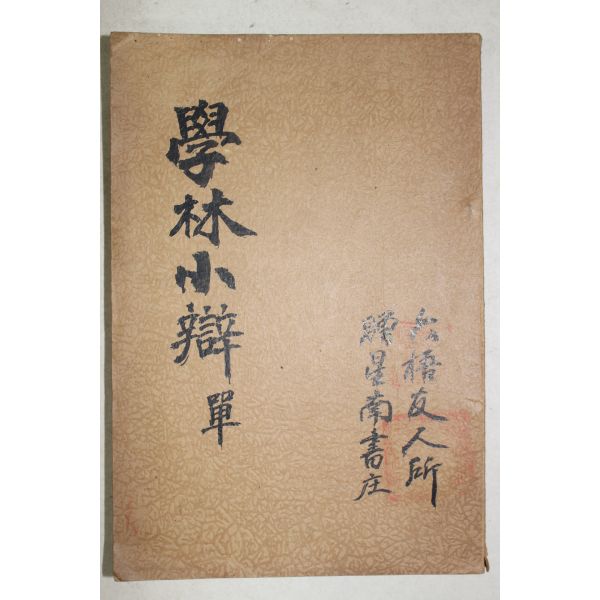 學林小辯 單
梧友人所
贈星南書庄